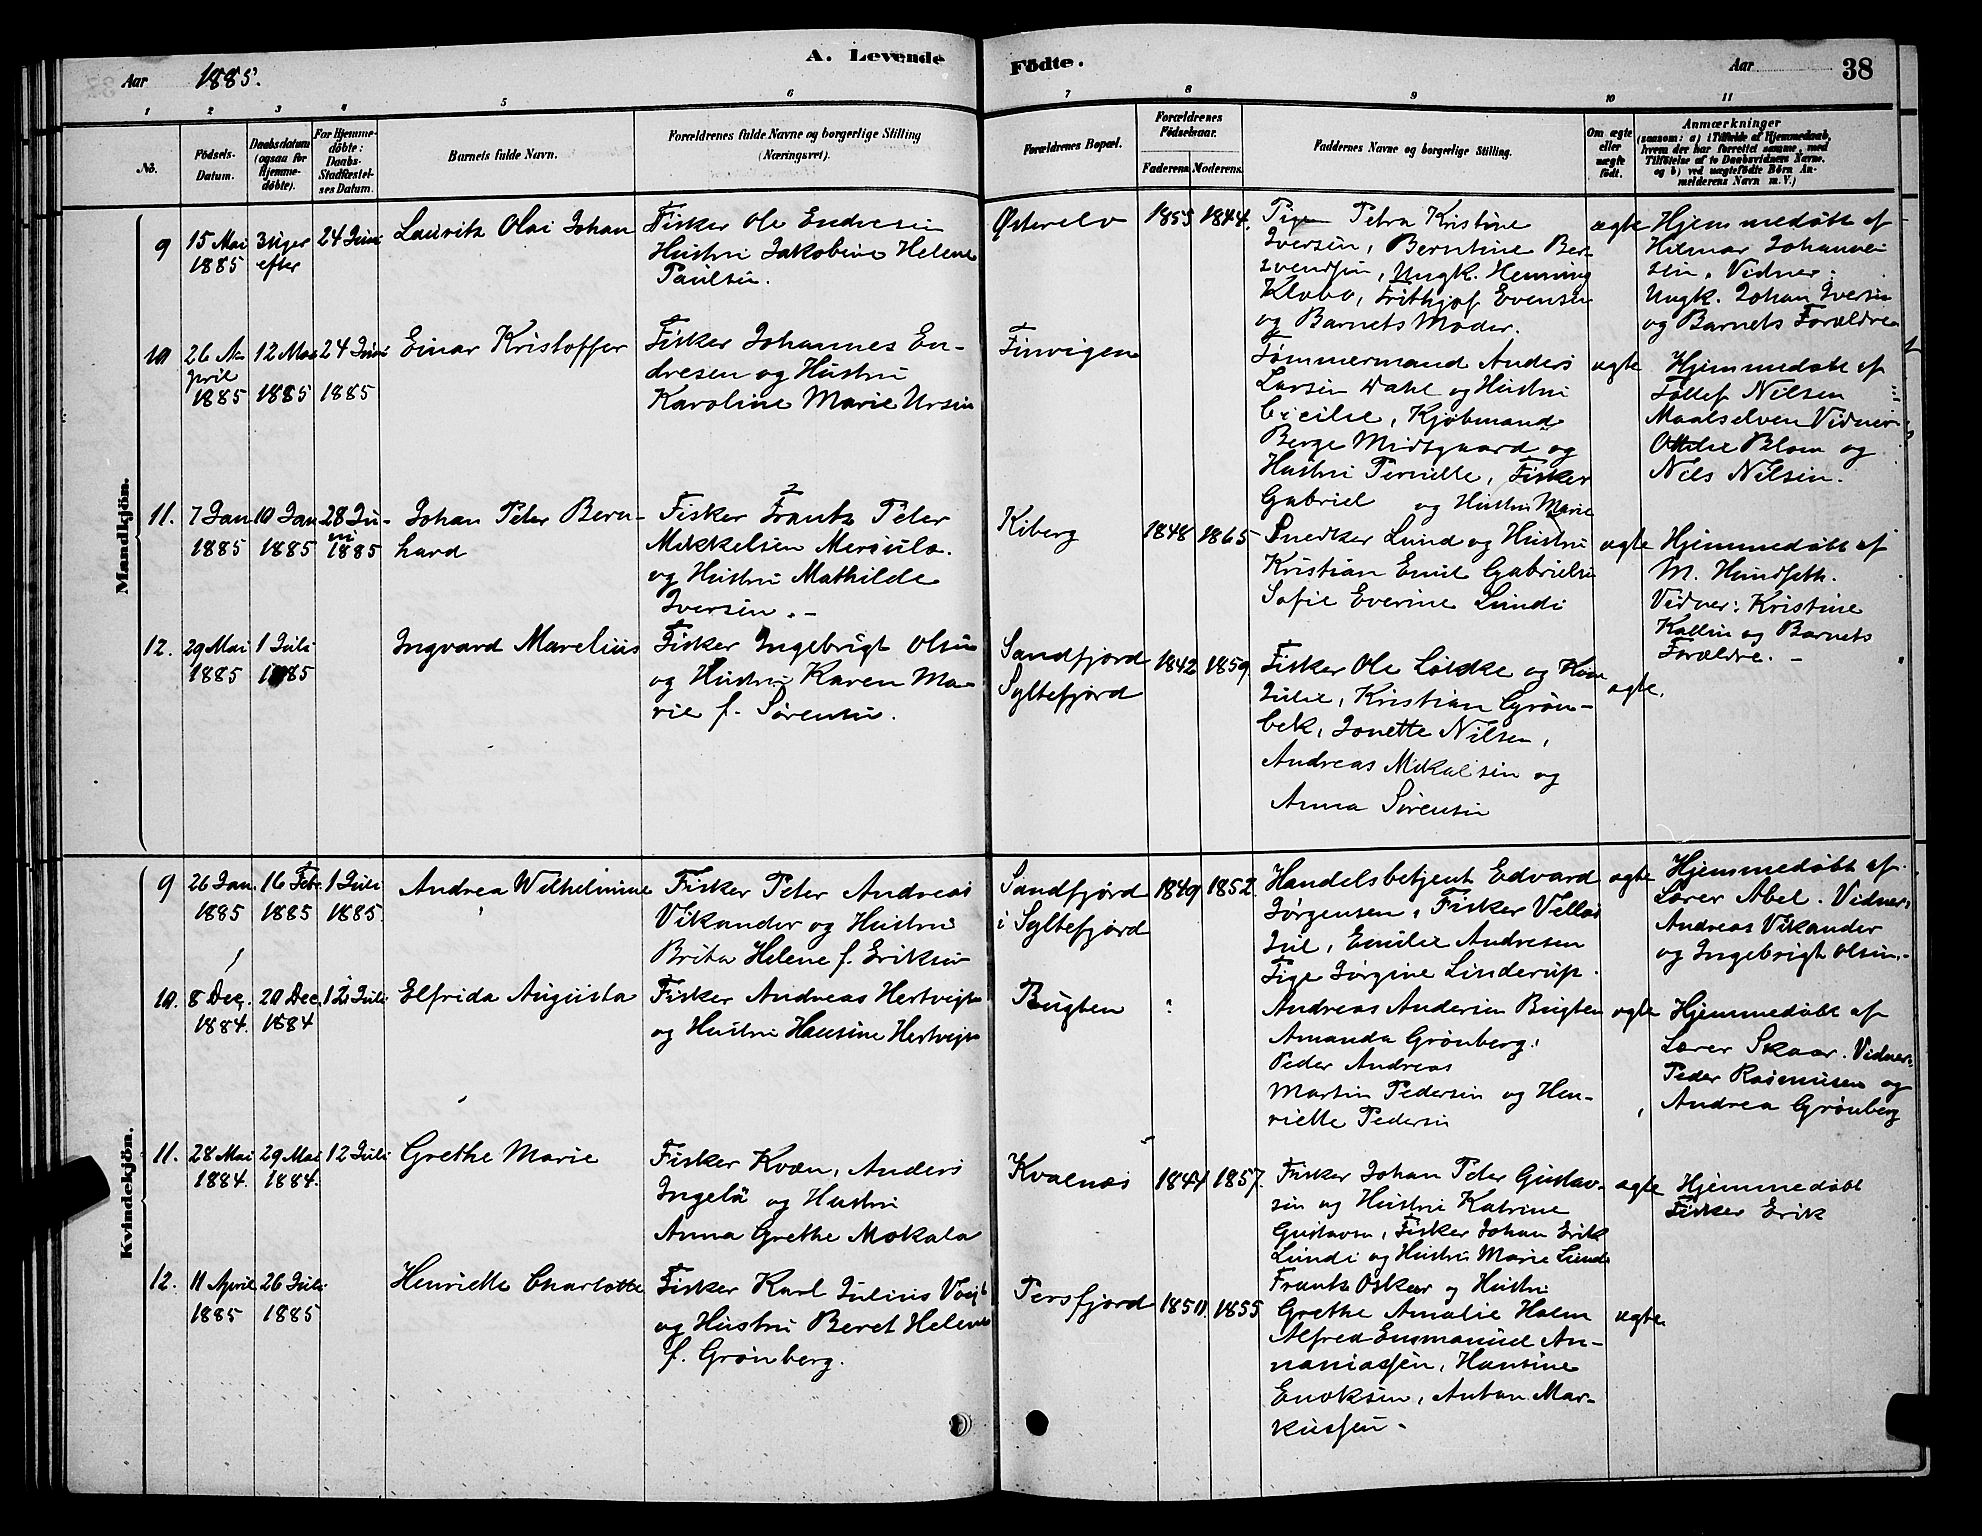 Aar 1885.
A. Levende Födte.
Aar 38
1 2 3 4 5 6 7 8 9 10 11
No.
Födsels-
Datum.
Daabsdatum
(ogsaa for
Hjemme-
döbte).
For Hjemme-
döbte:
Daabs-
Stadfæstel-
ses Datum.
Barnets fulde Navn.
Forældrenes fulde Navne og borgerlige Stilling
(Næringsvei).
Forældrenes Bopæl.
Forældrenes
Födselsaar.
Faderens. Moderens.
Faddernes Navne og borgerlige Stilling.
Om ægte
eller
uægte
födt.
Anmærkninger
(saasom: a) i Tilfælde af Hjemmedaab,
hvem der har forrettet samme, med
Tilföielse af to Daabsvidners Navne,
og b) ved uægtefödte Börn An-
melderens Navn m. V.)
Mandkjön.
9
15 Mai
1885
3 uger
efter
24 Juni
Lauritz Olai Johan
Fisker Ole Endresen
Hustru Jakobine Helene
Paulsen.
Østerelv
1855 1844.
Pige Petra Kristine
Iversen, Berntine Ber-
svendsen, Ungk. Henning
Klobo, Frithjof Evensen
og Barnets Moder.
ægte
Hjemmedøbt af
Hilmar Johanne-
sen, Vidner:
Ungk. Johan Iversen
og Barnets Forældre
10
26 A-
pril
1885
12 Mai
1885
24 Juni
1885
Einar Kristoffer
Fisker Johannes En-
dresen og Hustru
Karoline Marie Ursin
Finvigen
Tømmermand Anders
Larsen Dahl og Hustru
Cecilie, Kjøbmand
Berge Midtgaard og
Hustru Pernille, Fisker
Gabriel og Hustru Marie
ægte
Hjemmedøbt af
Tollef Nilsen
Maalselven Vidner
Ottilie Blom og
Nils Nilsen.
11.
7 Jan
1885
10 Jan
1885
28 Ju-
ni
1885
Johan Peter Bern-
hard
Fisker Frants Peter
Mikkelsen Mersula.
og Hustru Mathilde
Iversen. -
Kiberg
1848 1865
Snedker Lund og Hustru
Kristian Emil Gabrielsen
Sofie Everine Lundi
ægte
Hjemmedøbt af
M. Hundseth.
Vidner: Kristine
Kallin og Barnets
Forældre. -
12.
29 Mai
1885
1 Juli
1885
Ingvard Marelius
Fisker Ingebrigt Olsen
og Hustru Karen Ma-
rie f. Sørensen.
Sandfjord
Syltefjord
1842 1859
Fisker Ole Lødke og Kone
Julie, Kristian Grøn-
bek, Jonette Nilsen,
Andreas Mikalsen og
Anna Sørensen
ægte.
Kvindekjön.
9
26 Jan.
1885
16 Feb.
1885
1 Juli
1885.
Andrea Wilhelmine
Fisker Peter Andreas
Vikander og Hustru
Brita Helene f. Eriksen
Sandfjord
i Syltefjord
1849 1852.
Handelsbetjent Edvard
Jørgensen, Fisker
Jul, Emilie Andresen
Pige Jørgine Linderup.
ægte
Hjemmedøbt af
Lærer Abel. Vidner:
Andreas Vikander
og Ingebrigt Olsen.-
10.
8 Dec.
1884.
20 Dec.
1884
12 Juli
Elfrida Augusta
Fisker Andreas Hertvigsen
og Hustru Hansine Hertvigsen
Bugten
Andreas Andersen Bugten
Amanda Grønberg,
Peder Andreas
Martin Pedersen og Hen-
riette Pedersen
ægte
Hjemmedøbt af
Lærer Skaar. Vidner:
Peder Rasmusen og
Andrea Grønberg
11.
28 Mai
1884.
29 Mai
1884.
12 Juli
Grethe Marie
Fisker Kvæn, Anders
Ingelä og Hustru
Anna Grethe Mokala
Kvalnæs
1844 1857.
Fisker Johan Peter Gustav-
sen og Hustru Katrine
Gustavsen, Fisker Johan Erik
Lundi og Hustru Marie Lundi
ægte
Hjemmedøbt
Fisker Erik
12.
11 April
1885
26 Juli
1885
Henriette Charlotte
Fisker Karl Julius Voigt
og Hustru Beret Helene
f. Grønberg.
Persfjord
1850. 1855
Frants Oskar og Hustru
Grethe Amalie Holm
Alfred Emmanuel An-
naniassen, Hansine
Enoksen, Anton Mar-
kussen -
ægte